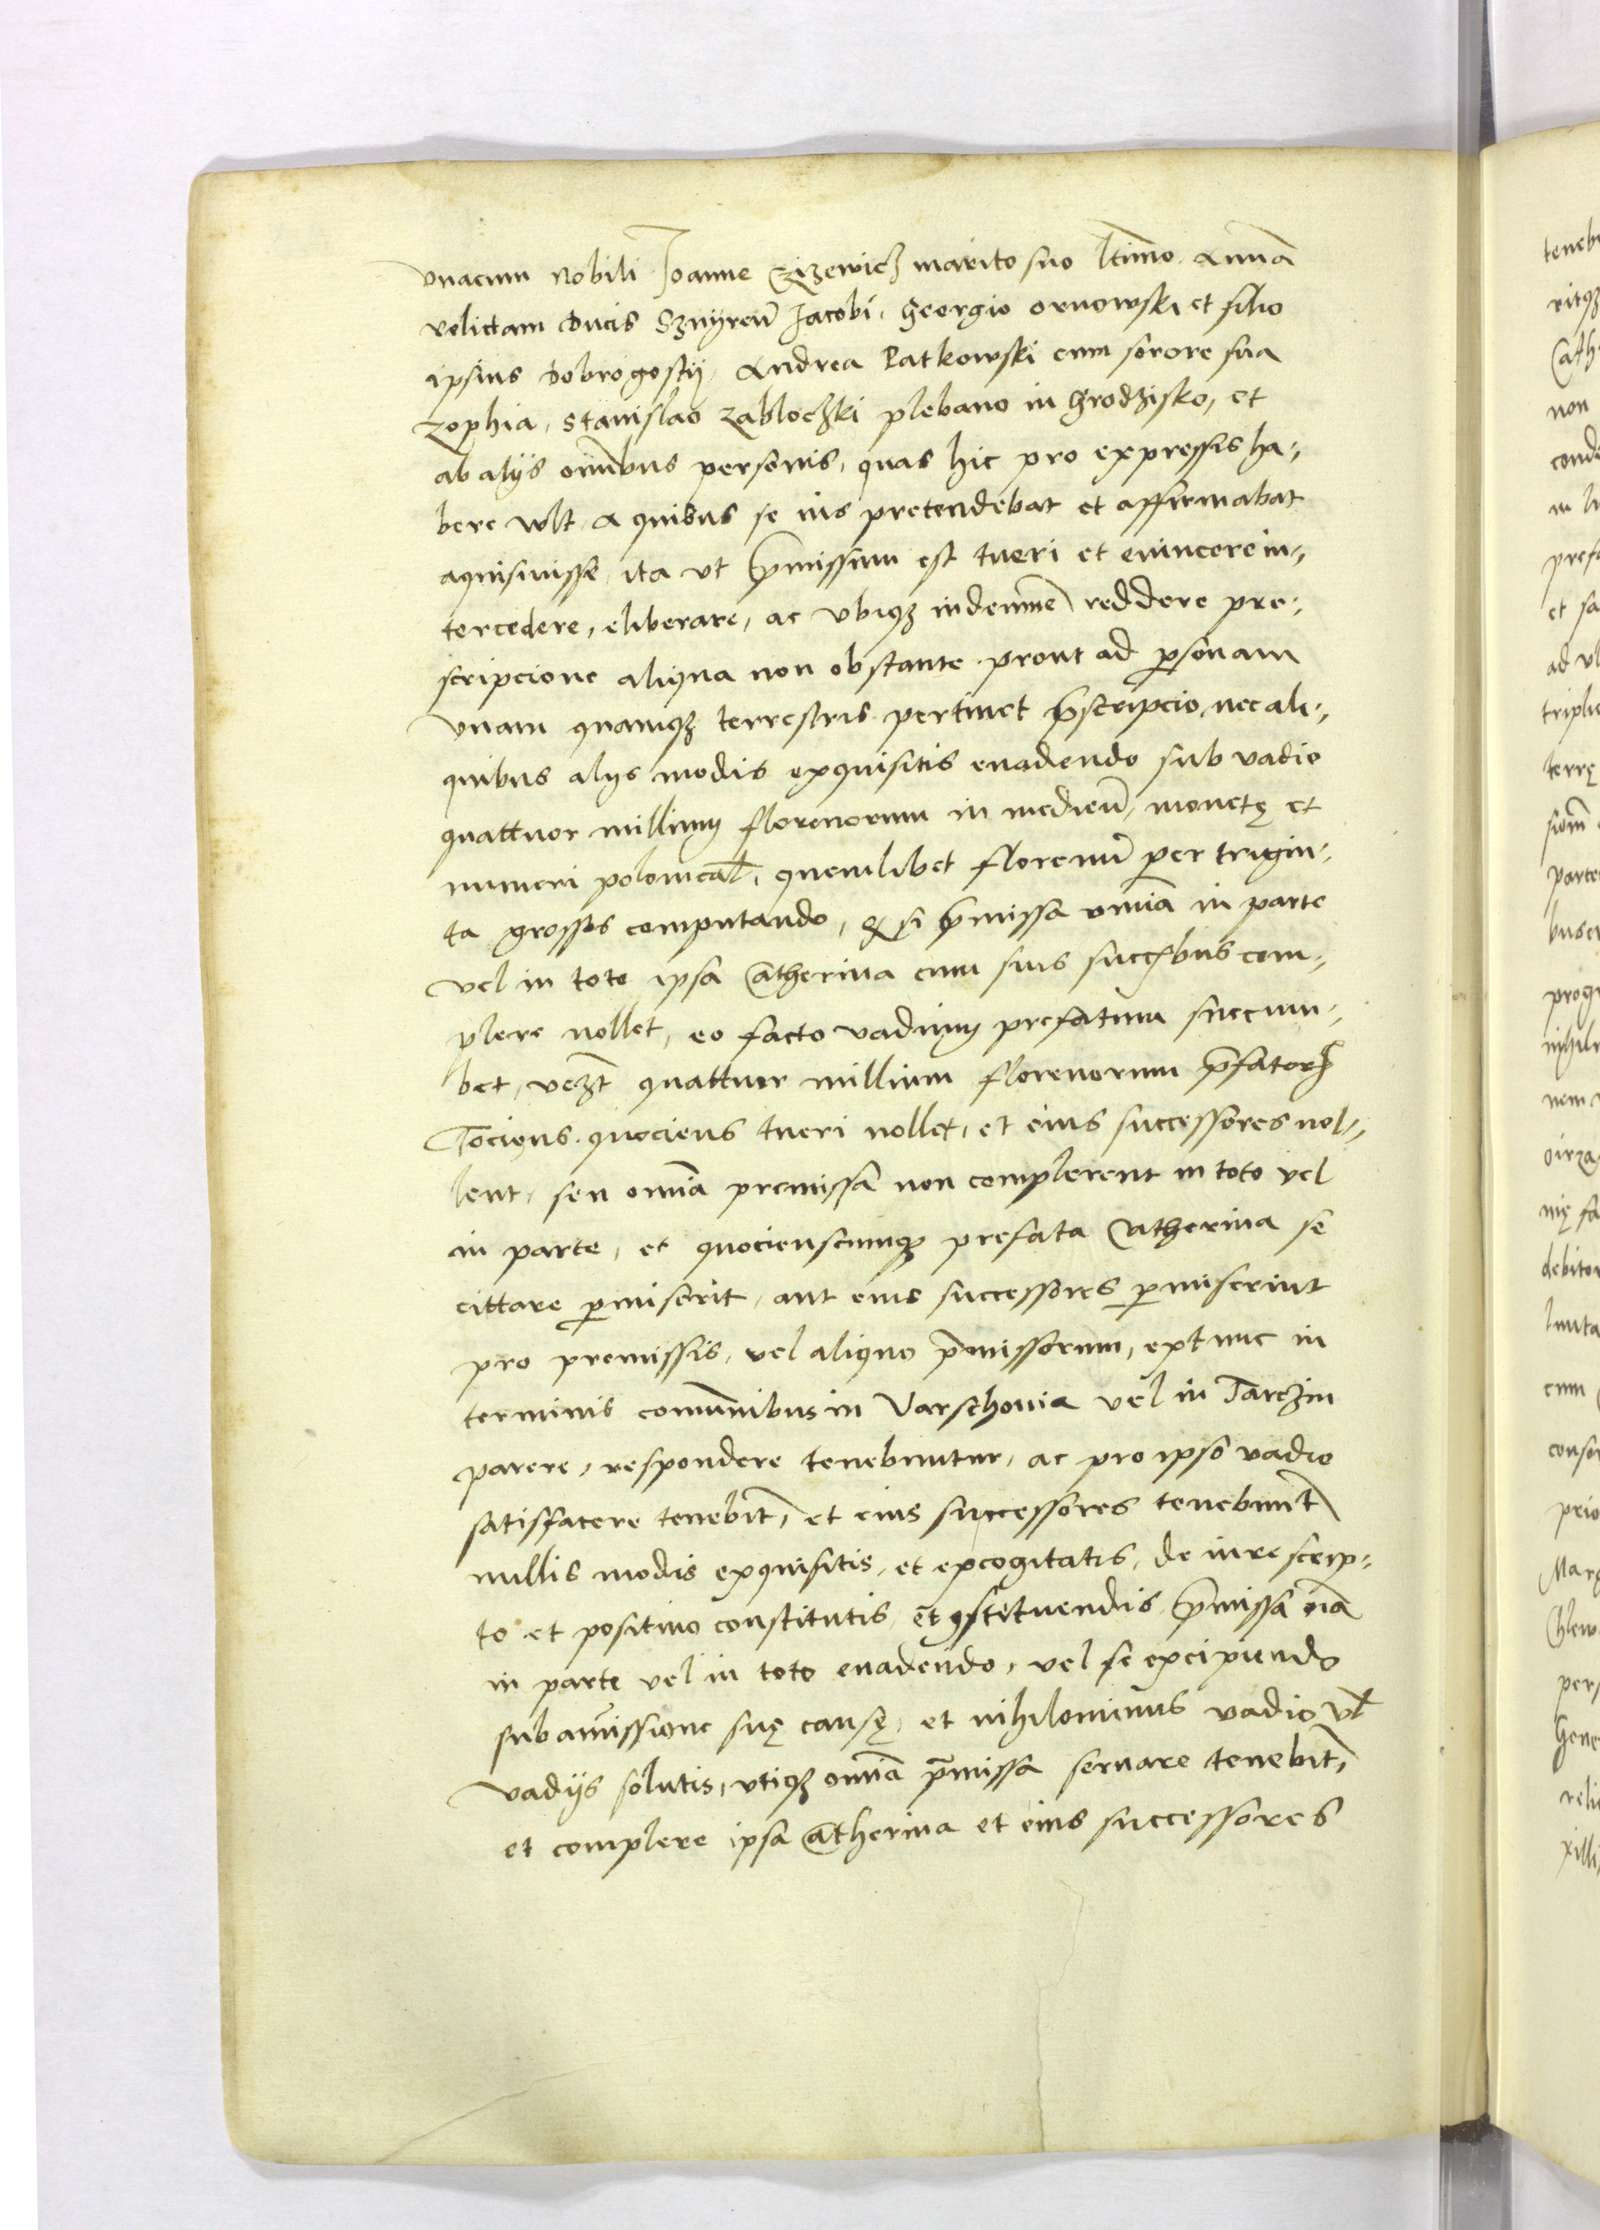 vnacum nobili Joanne Czizewicz marito suo ltimo Annā
relictam Ducis Sznyreū Jacobi, Georgio ornowski et filio
ipsius Dobrogostij, Andrea Patkowski cum sorore sua
zophia, Stanislao zabloczki plebano in Grodzisko, et
ab alijs omībus personis, quas hic pro expressis ha-
bere wlt, a quibus se ius pretendebat et affirmabat
aquisiuisse, ita vt p̄missum est tueri et euincere in-
tercedere, eliberare, ac vbiqz indemnē reddere pre-
scripcione aliqua non obstante, prout ad p̱sonam
vnam quamqz terrestris pertinet p̄scripcio, nec ali-
quibus alijs modis exquisitis euadendo sub vadio
quattuor millium florenorum in mediēū, monetę et
numeri polonical, quemlibet florenū per trigin-
ta grossos computando, & si p̄missa omīa in parte
vel in toto ipsa Catherina cum suis succ̄bus com-
plere nollet, eo facto vadium prefatum succum-
bet, vezt quattuor millium florenorum p̄fatorꝝ
Tociens quociens tueri nollet, et eius successores nol-
lent, seu omīa premissa non complerent in toto vel
in parte, et quocienscumqz prefata Catherina se
cittare p̱miserit, aut eius successores p̱miserint
pro premissis, vel aliquo p̄missorum, extunc in
terminis comunibus in Varschouia vel in Tarczin
parere, respondere tenebuntur, ac pro ipso vadio
satisfacere tenebit̄, et eius successores tenebunt̄
nullis modis exquisitis, et excogitatis, de iure scrip-
to et positiuo constitutis, et 9stituendis p̄missa oīa
in parte vel in toto euadendo, vel se excipiendo
sub amissione suę causę, et nihilominus vadio vł
vadijs solutis, vtiqz omīa p̄missa seruare tenebit̄,
et complere ipsa Catherina et eius successores
tenebu
ritqz
Cath
non
conde
in
prefa
et sa
ad vl
triplic
terrę
parte
nem
debitor
cum
conso
prio
Marg
pers
Gene
reli